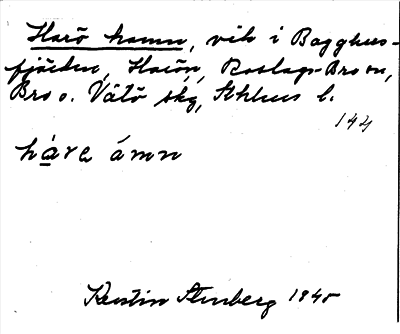 Harö hamn, vik i Bagghus-
fjärden, Harön, Roslags-Bro sn,
Bro o. Vätö skg, Sthlms l.
144
håra ámn
Kerstin Stenberg 1945